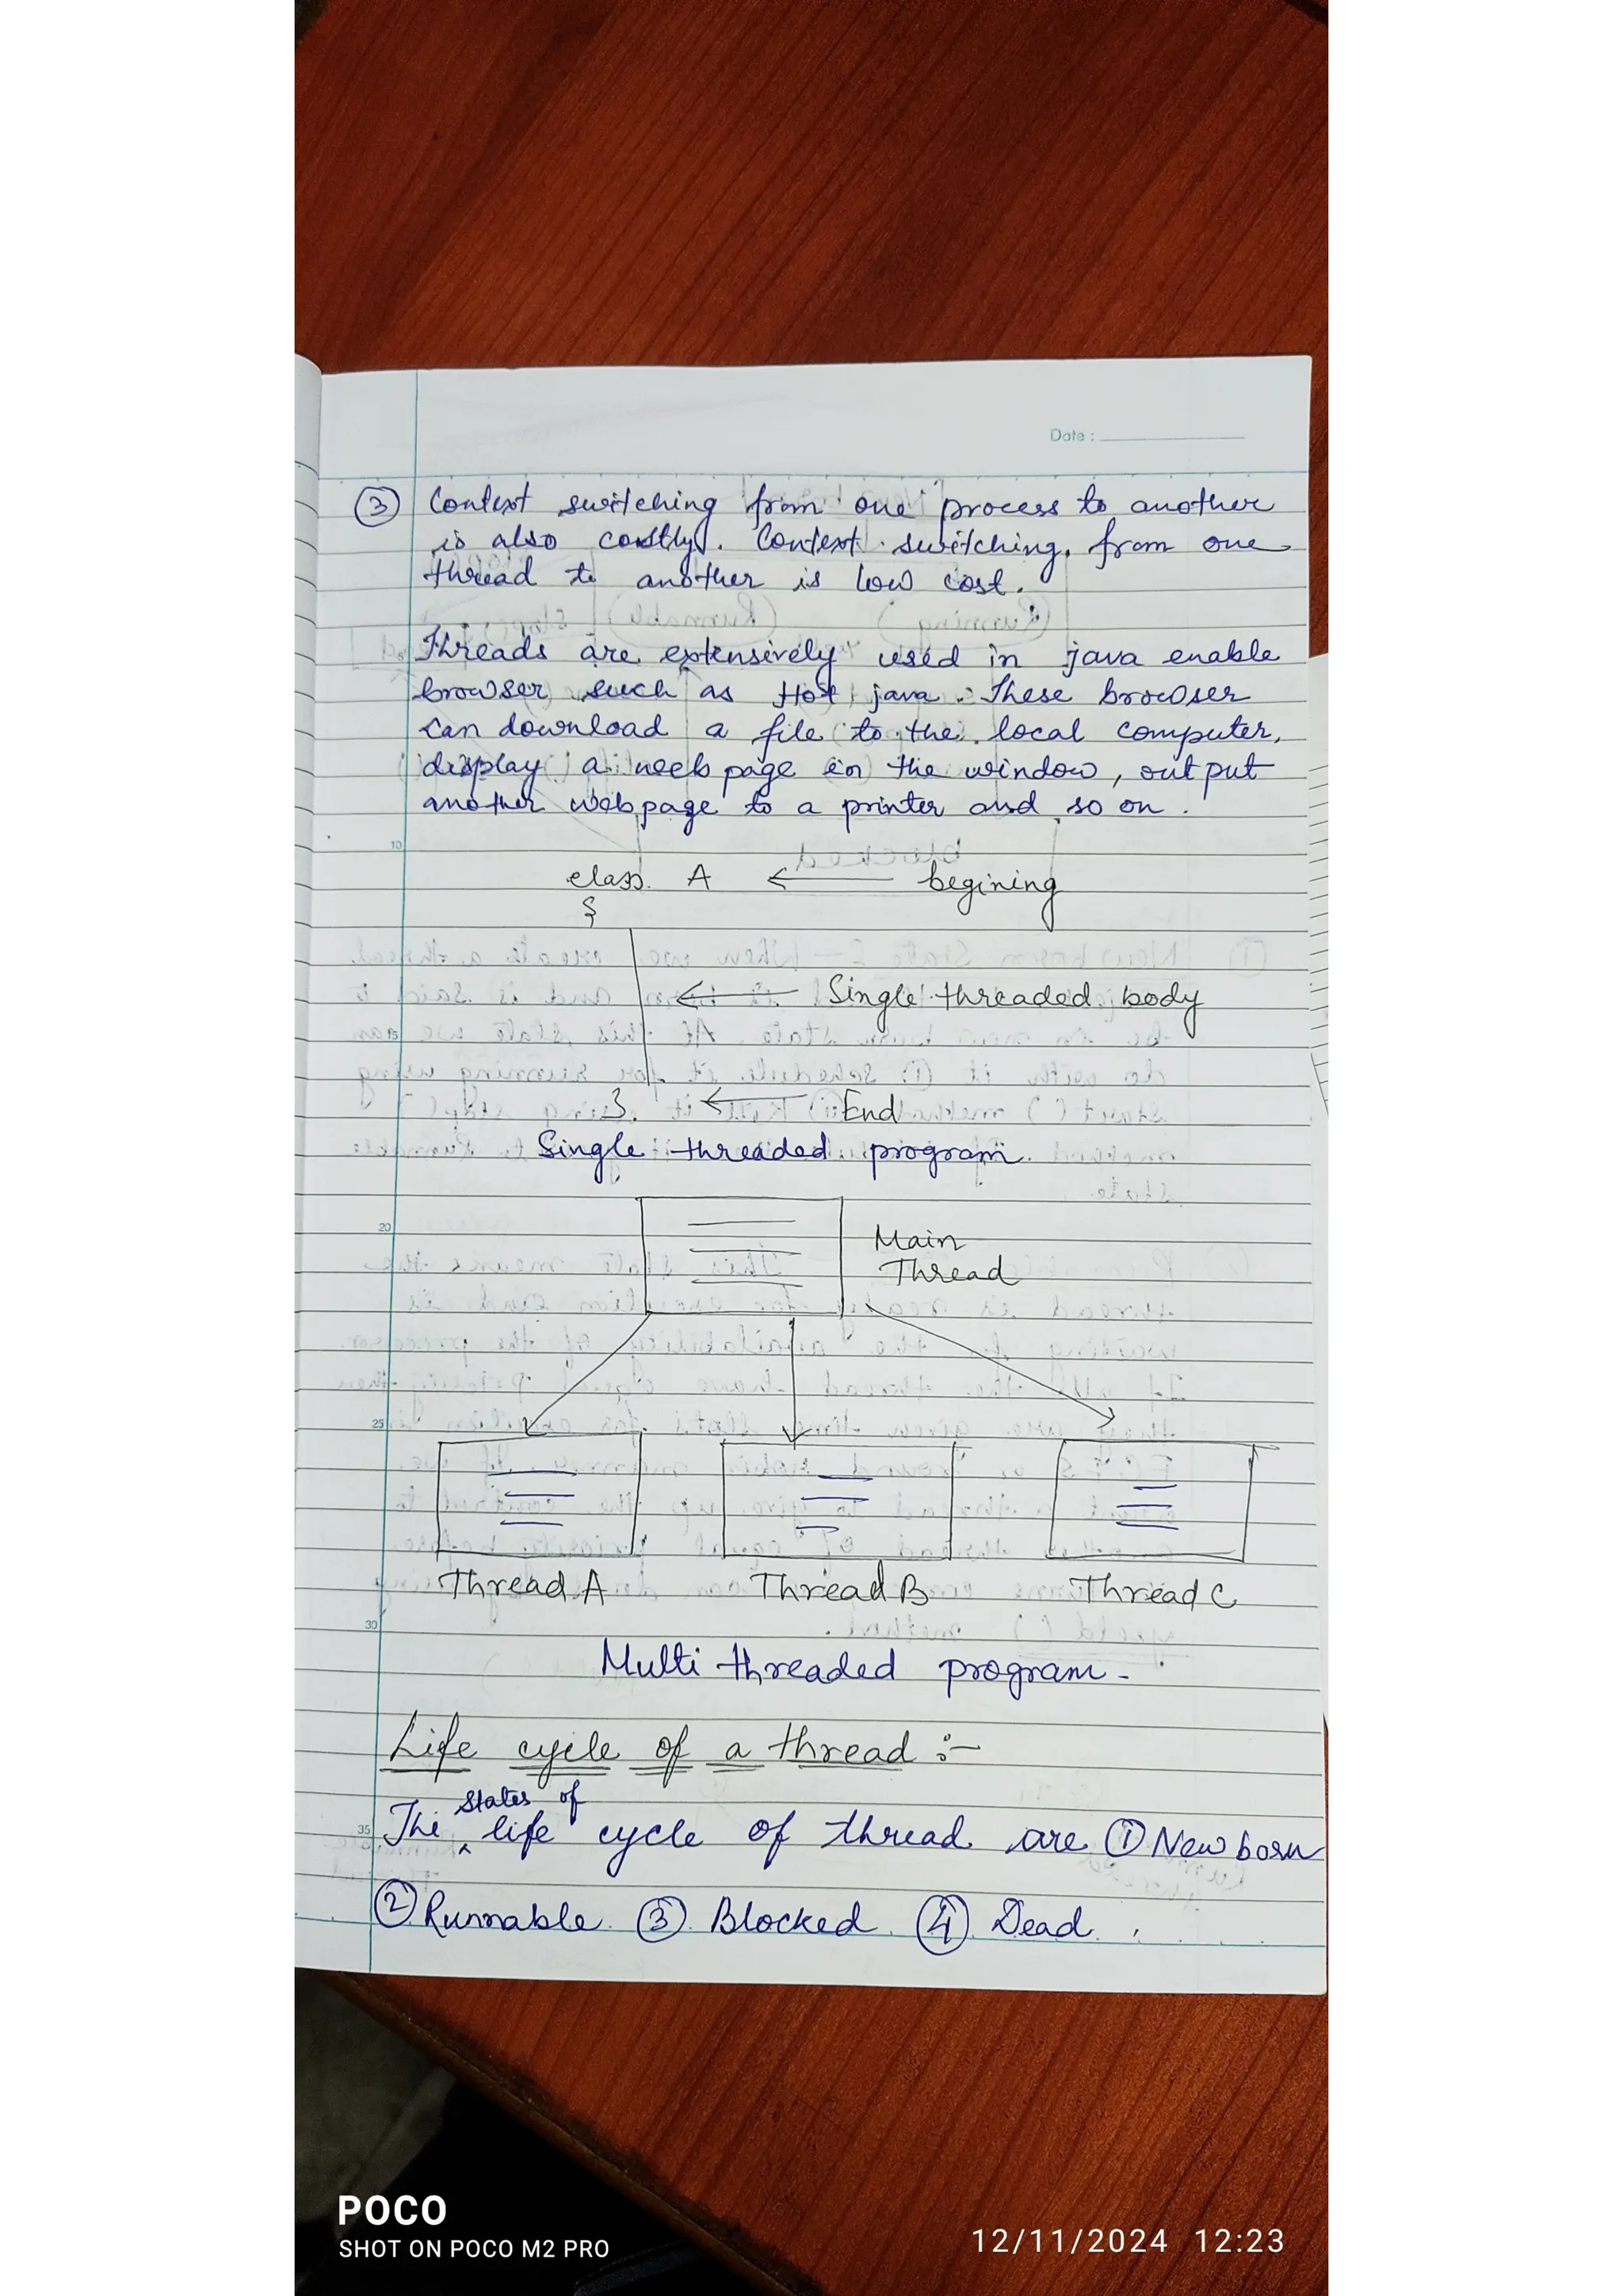 Date :
③ Context switching from one process to another
is also costly. Context switching from one
thread to another is low cost.
Threads are extensively used in java enable
browser such as Hot java. These browser
can download a file to the local computer,
display a web page in the window, output
another webpage to a printer and so on.
10
class A ← begining
{
← Single threaded body
15
}. ← End
Single threaded program.
20
Main
Thread
25
Thread A Thread B Thread C
30
Multi threaded program -
Life cycle of a thread :-
states of
35
The ^ life cycle of thread are ① New born
② Runnable ③ Blocked ④ Dead.
POCO
SHOT ON POCO M2 PRO
12/11/2024 12:23